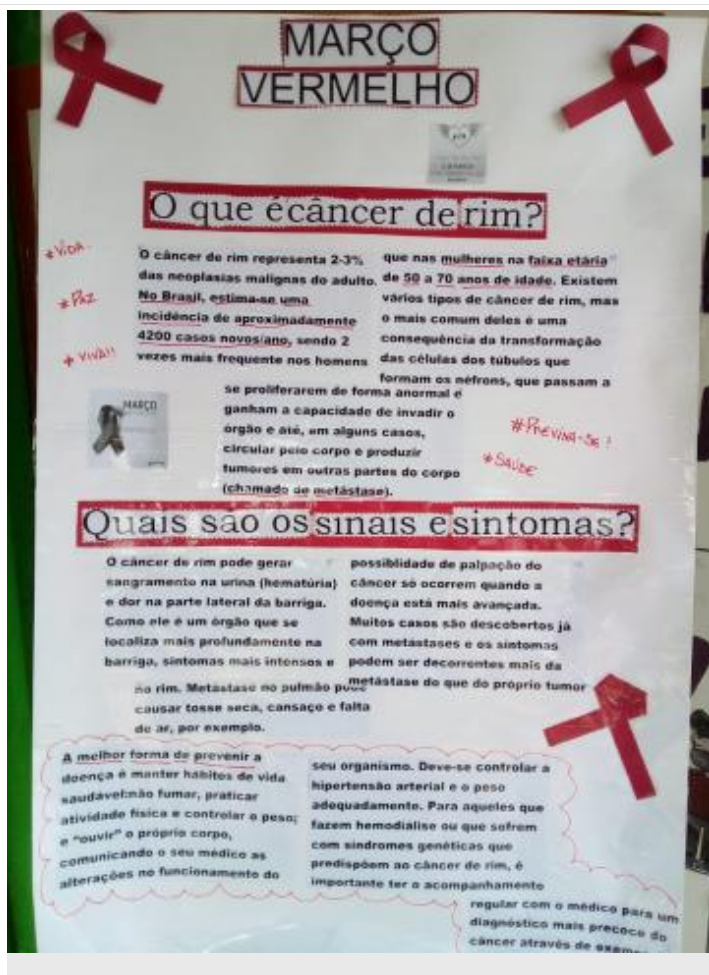 MARÇO
VERMELHO
O que é câncer de rim?
*VIDA
*PAZ
*VIVA!!
O câncer de rim representa 2-3%
das neoplasias malignas do adulto.
No Brasil, estima-se uma
incidência de aproximadamente
4200 casos novos/ano, sendo 2
vezes mais frequente nos homens
que nas mulheres na faixa etária
de 50 a 70 anos de idade. Existem
vários tipos de câncer de rim, mas
o mais comum deles é uma
consequência da transformação
das células dos túbulos que
formam os néfrons, que passam a
se proliferarem de forma anormal e
ganham a capacidade de invadir o
órgão e até, em alguns casos,
circular pelo corpo e produzir
tumores em outras partes do corpo
(chamado de metástase).
MARÇO
#PREVINA-SE!
*SAÚDE
Quais são os sinais e sintomas?
O câncer de rim pode gerar
sangramento na urina (hematúria)
e dor na parte lateral da barriga.
Como ele é um órgão que se
localiza mais profundamente na
barriga, sintomas mais intensos e
possiblidade de palpação do
câncer só ocorrem quando a
doença está mais avançada.
Muitos casos são descobertos já
com metástases e os sintomas
podem ser decorrentes mais da
metástase do que do próprio tumor
no rim. Metástase no pulmão pode
causar tosse seca, cansaço e falta
de ar, por exemplo.
A melhor forma de prevenir a
doença é manter hábitos de vida
saudável:não fumar, praticar
atividade física e controlar o peso;
e "ouvir" o próprio corpo,
comunicando o seu médico as
alterações no funcionamento do
seu organismo. Deve-se controlar a
hipertensão arterial e o peso
adequadamente. Para aqueles que
fazem hemodiálise ou que sofrem
com síndromes genéticas que
predispõem ao câncer de rim, é
importante ter o acompanhamento
regular com o médico para um
diagnóstico mais precoce do
câncer através de